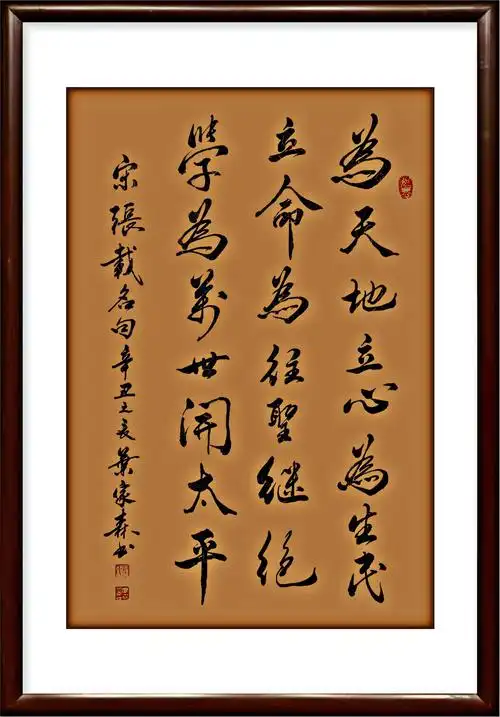 為天地立心為生民
立命為往聖继絕
學為萬世開太平
宋張載名句辛丑之夏葉家森书